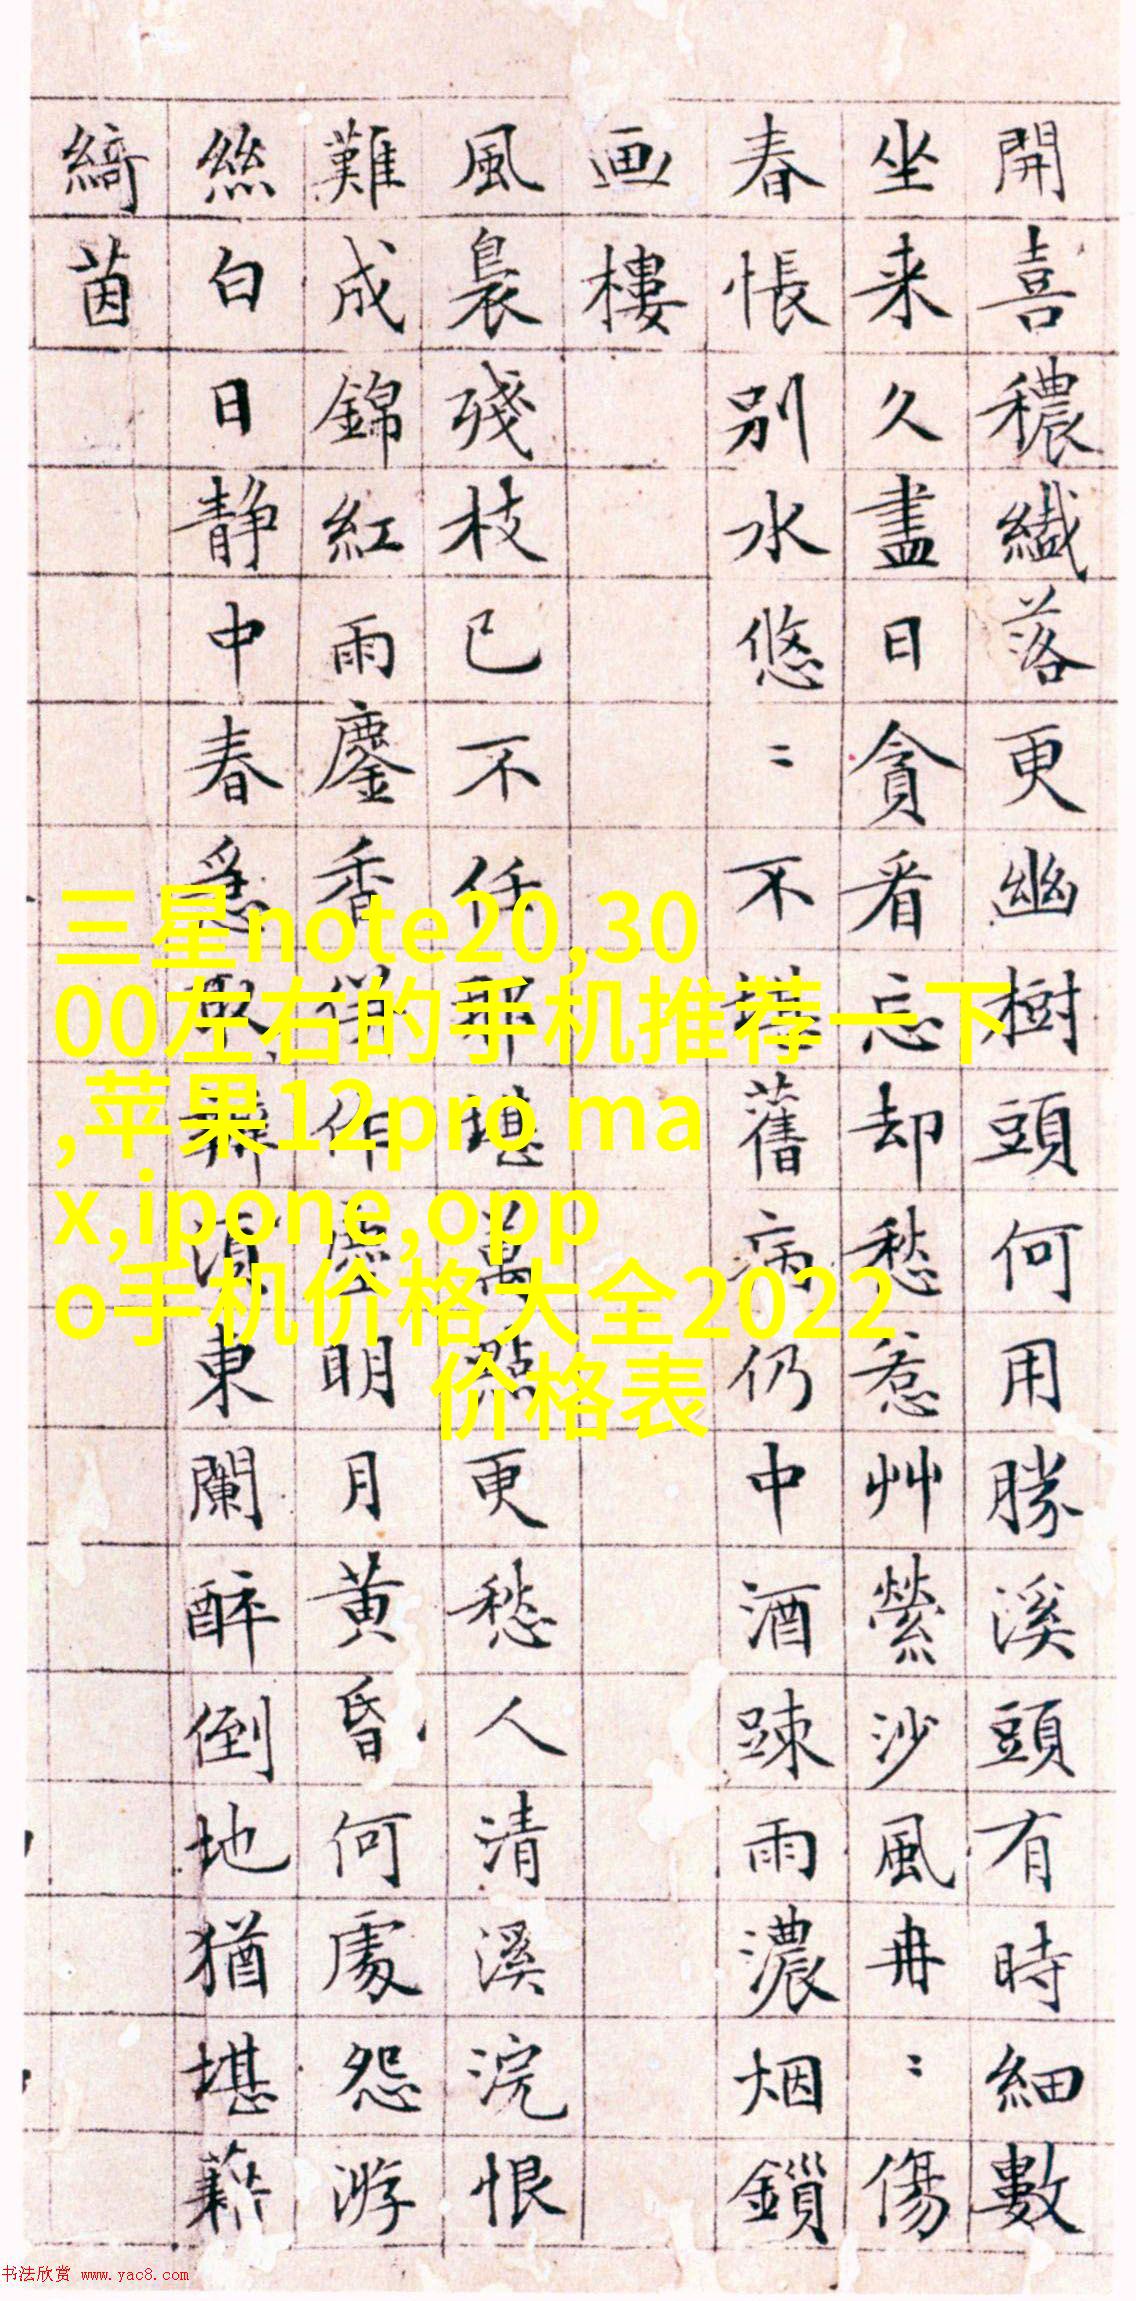 開喜穠纖落更幽樹頭何用勝溪頭有時細數
坐来久盡日貪看忘却愁惹艸縈沙風冉〻傷
春悵別水悠〻不堪舊病仍中酒踈雨濃烟鎖
画樓
風裊殘枝已不任那堪萬點更愁人清溪浣恨
難成錦紅雨鏖香得作塵明月黄昏何處怨游
絲白日静中春急取須東闌醉倒地猶堪藉
綺茵
三星note20,30
00左右的手机推荐一下
,苹果12pro ma
x,ipone,opp
o手机价格大全2022
价格表
书法欣赏 www.yac8.com